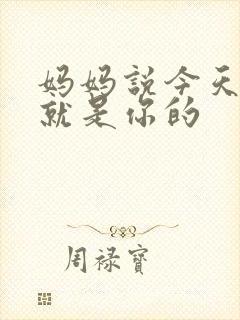 妈妈説今天
就是你的
周禄寶